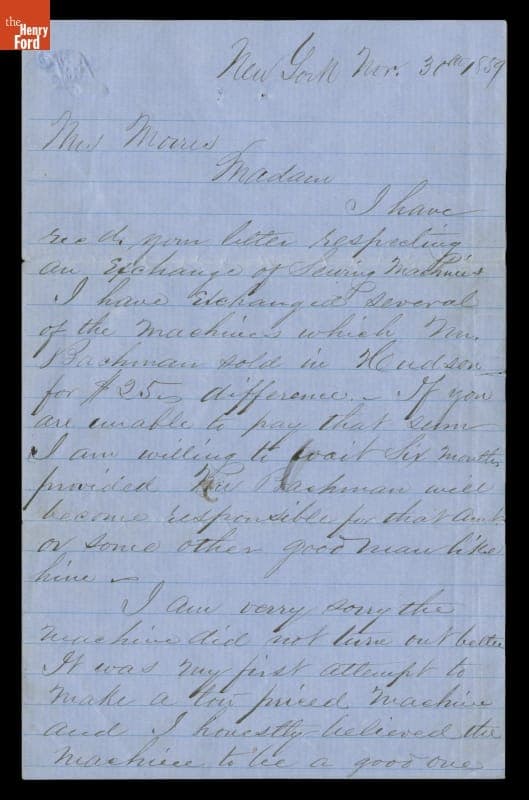 the
Henry
Ford
New York Nov. 30th 1859
Mrs Morris
Madam
I have
rec'd your letter respecting
an Exchange of Sewing Machines
I have Exchanged several
of the machines which Mr.
Bachman sold in Hudson
for $25, difference. If you
are unable to pay that sum
I am willing to wait Six months
provided Mr Bachman will
become responsible for that amt
or some other good man like
him
I am verry sorry the
machine did not turn out better
It was my first attempt to
make a low priced machine
and I honestly believed the
machine to be a good one